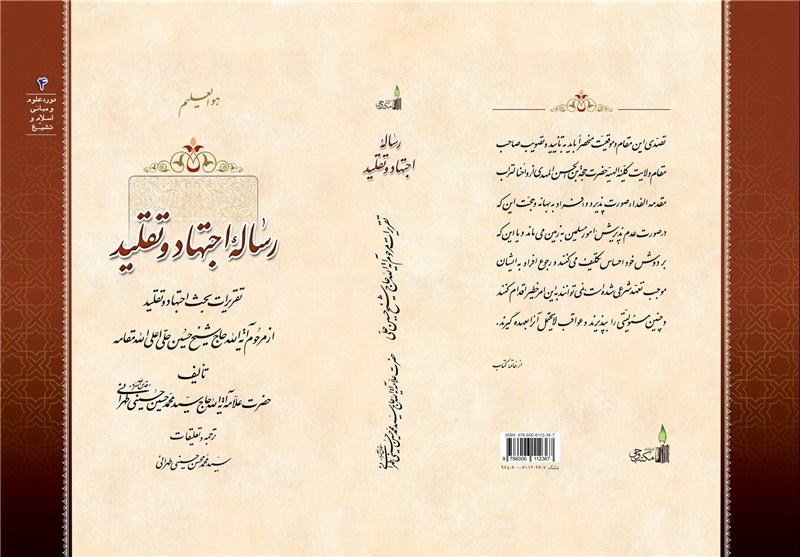 ۴
دوره علوم
و مبانی
اسلام و
تشیّع
هوالعلیم
رسالهٔ اجتهاد و تقلید
تقریرات بحث اجتهاد و تقلید
از مرحوم آیة الله حاج شیخ حسین حلّی اعلی الله مقامه
تألیف
حضرت علّامه آیة الله حاج سید محمد حسین حسینی طهرانی
ترجمه و تعلیقات
سید محمد محسن حسینی طهرانی
رسالهٔ
اجتهاد و تقلید
تقریرات مرحوم آیة الله حاج شیخ حسین حلّی
حضرت علامه آیة الله حاج سید محمد حسین حسینی طهرانی
تصدّی این مقام و موقعیّت منحصراً باید به تأیید و تصویب صاحب
مقام ولایت کلیّهٔ الهیّه حضرت حجّة بن الحسن المهدی ارواحنا لتراب
مقدمه الفداء صورت پذیرد و افراد به بهانه و حجّت این که
در صورت عدم پذیرش امور مسلمین به زمین می ماند و یا این که
بر دوش خود احساس تکلیف می کنند و رجوع افراد به ایشان
موجب تعهّد شرعی شده است نمی توانند به این امر خطیر اقدام کنند
و چنین مسئولیّتی را بپذیرند و عواقب لایتحمّل آن را به عهده گیرند.
از خاتمهٔ کتاب
ISBN: 978-600-6112-36-7
9 786006 112367
شابک: ۷-۳۶-۶۱۱۲-۶۰۰-۹۷۸
مکتب وحی